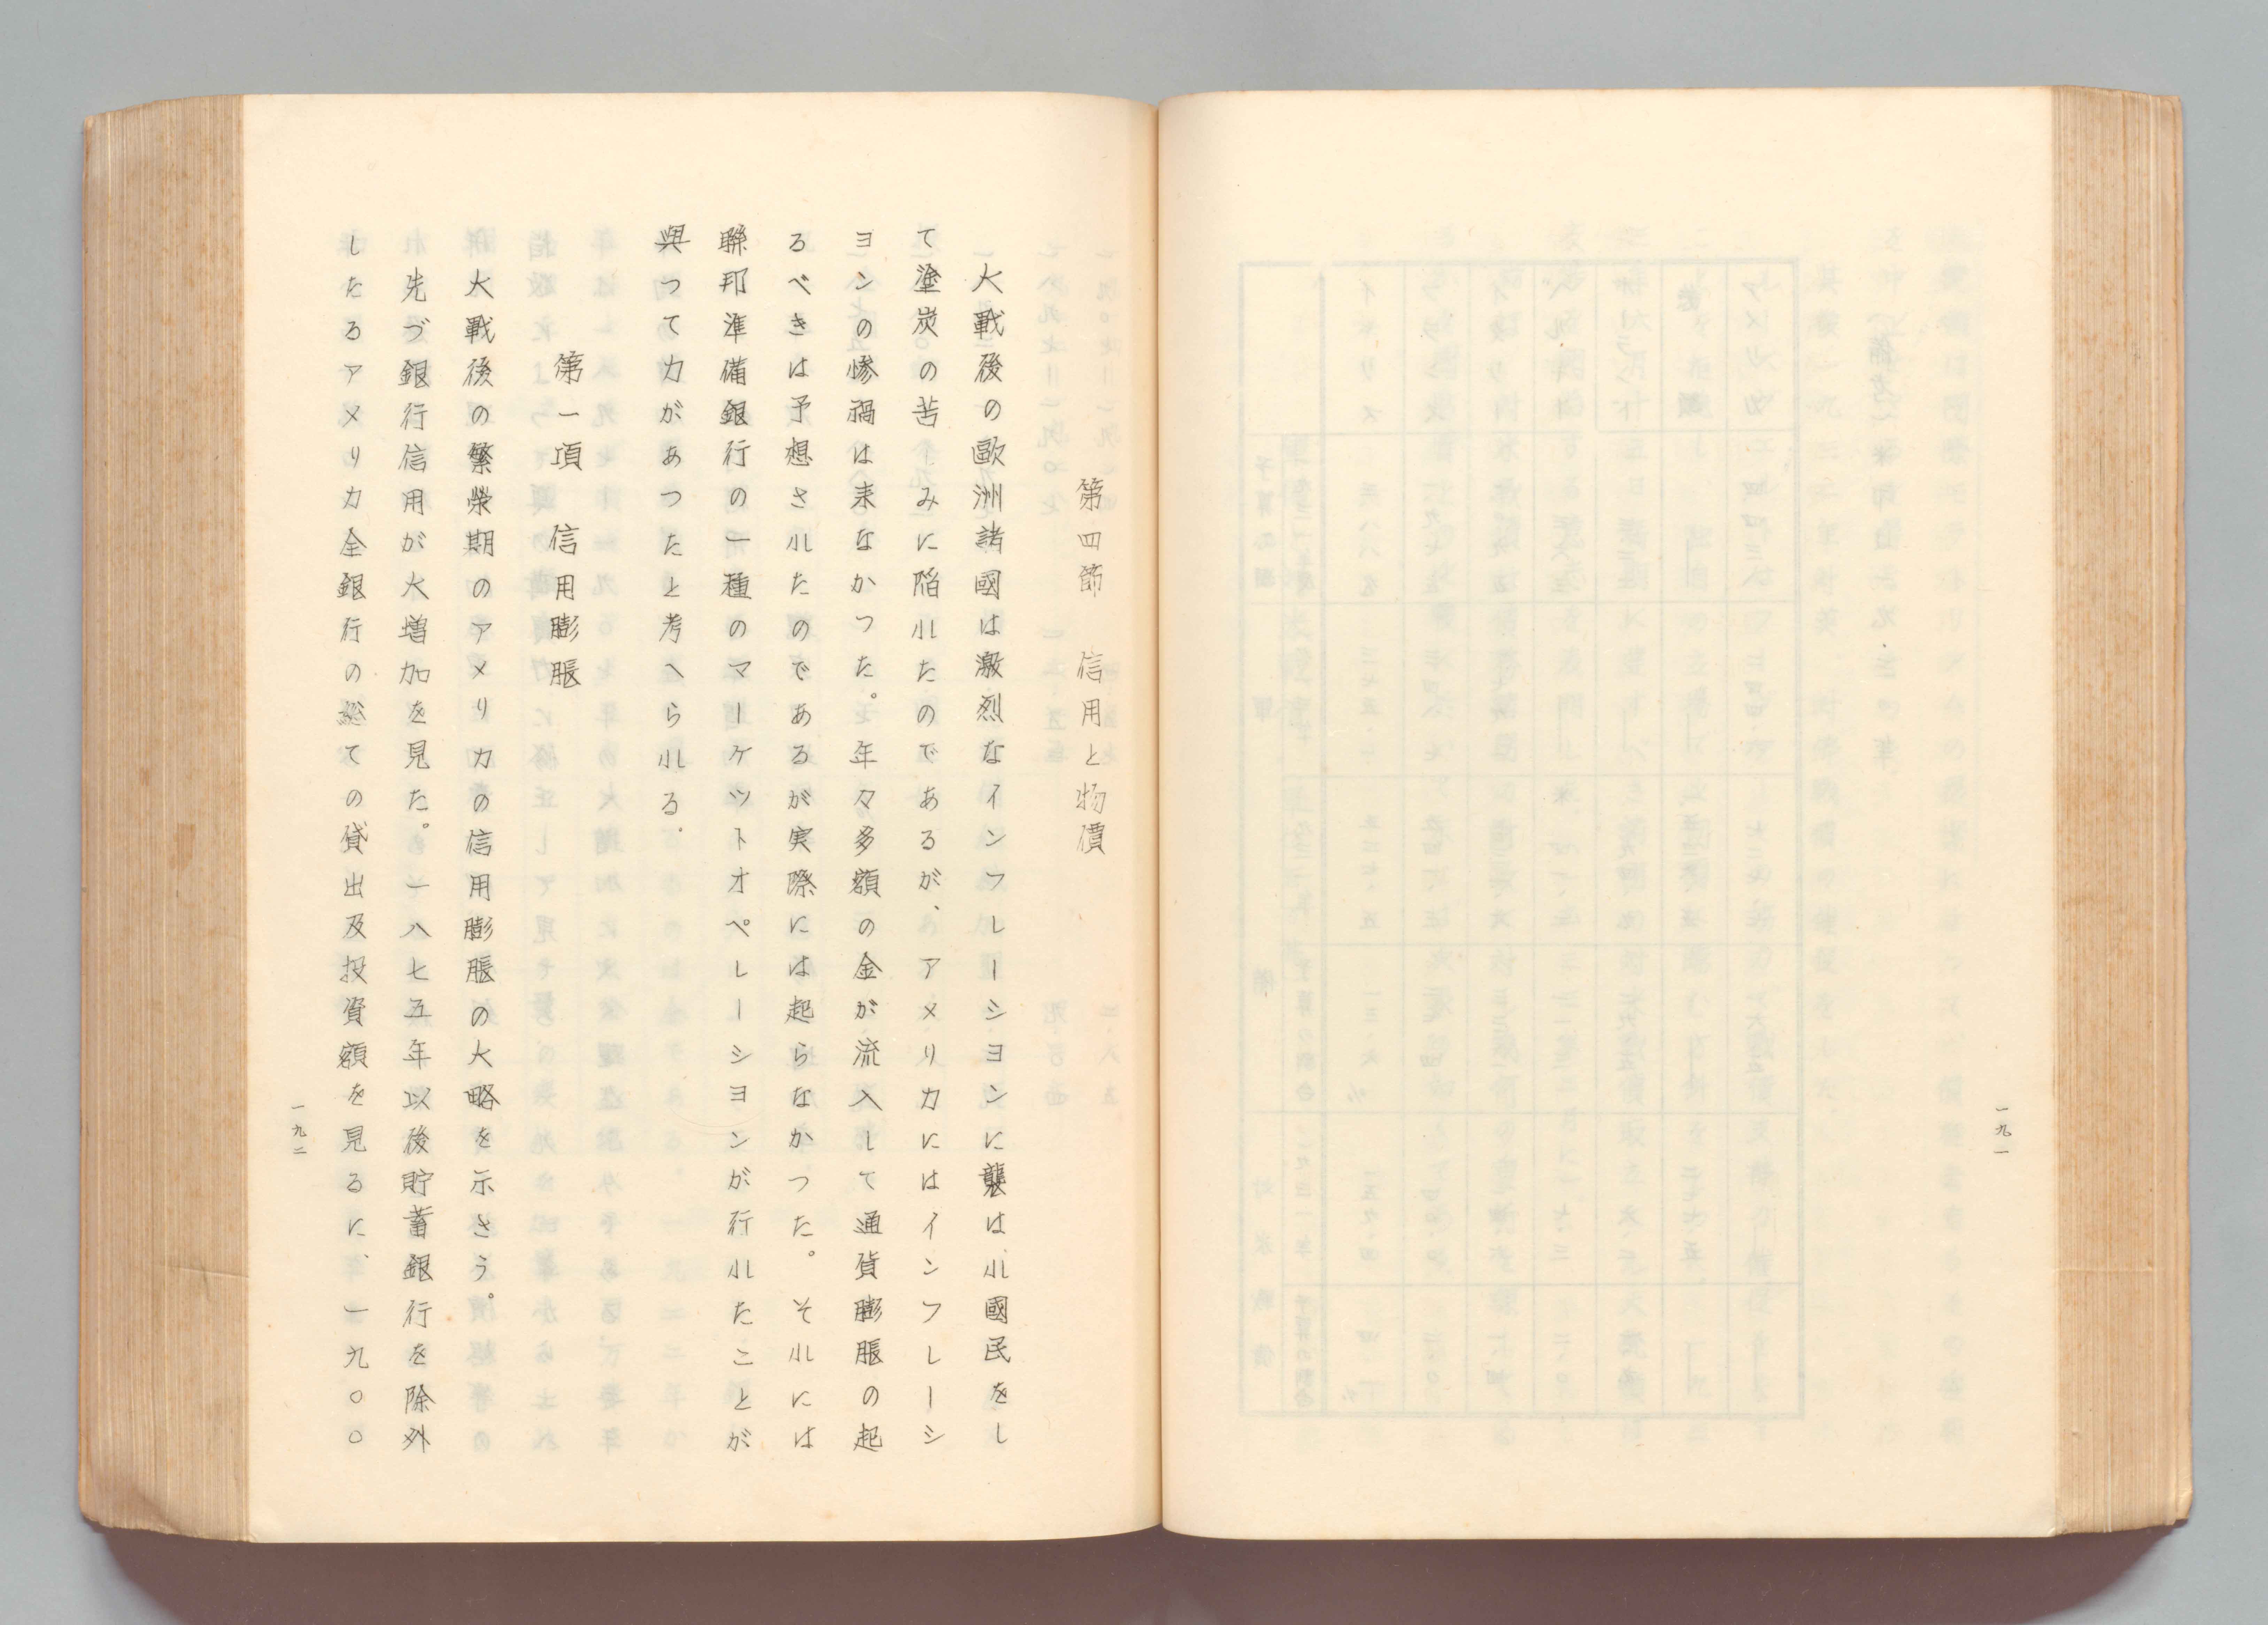 一九一
第四節　信用と物價
大戰後の歐洲諸國は激烈なインフレーシヨンに襲はれ國民をし
て塗炭の苦しみに陷れたのであるが、アメリカにはインフレーシ
ヨンの惨禍は来なかつた。年々多額の金が流入して通貨膨脹の起
るべきは予想されたのであるが実際には起らなかつた。それには
聯邦準備銀行の一種のマーケツトオペレーシヨンが行れたことが
與つて力があつたと考へられる。
第一項　信用膨脹
大戰後の繁榮期のアメリカの信用膨脹の大略を示さう。
先づ銀行信用が大増加を見た。一八七五年以後貯蓄銀行を除外
したるアメリカ全銀行の総ての貸出及投資額を見るに、一九〇〇
一九二